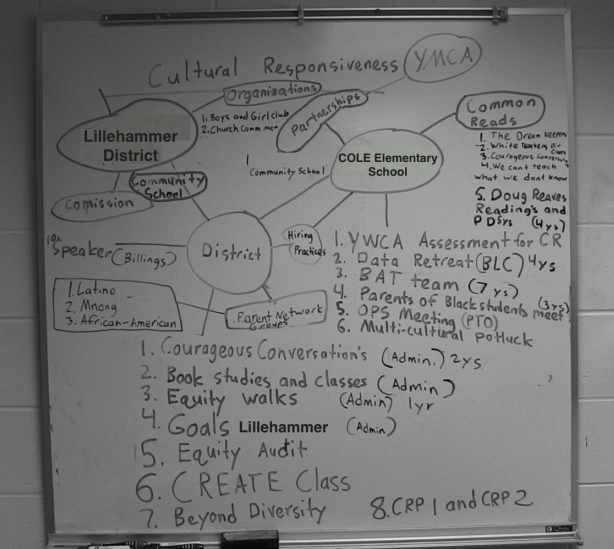 Cultural Responsiveness
YMCA
Organizations
1. Boys and Girl club
2. Church Comm
Partnerships
Lillehammer
District
Community
School
Comission
COLE Elementary
School
1
Community School
Common
Reads
1. The Dream keepers
2. White Teachers Div
Class
3. Courageous conversations
4. We cant teach
what we dont know
5. Doug Reaves
Reading's and
PDSys (4ys)
District
Hiring
Practices
Speaker (Billings)
1. Latino
2. Mnong
3. African-American
Parent Network
Groups
1. YWCA Assessment for CR
2. Data Retreat (BLC) 4ys
3. BAT team (7ys)
4. Parents of Black students meet (3ys)
5. OPS Meeting (PTO)
6. Multi-cultural potluck
1. Courageous Conversation's (Admin.) 2ys
2. Book studies and classes (Admin)
3. Equity walks (Admin) 1yr
4. Goals Lillehammer (Admin)
5. Equity Audit
6. CREATE Class
7. Beyond Diversity
8. CRP 1 and CRP 2